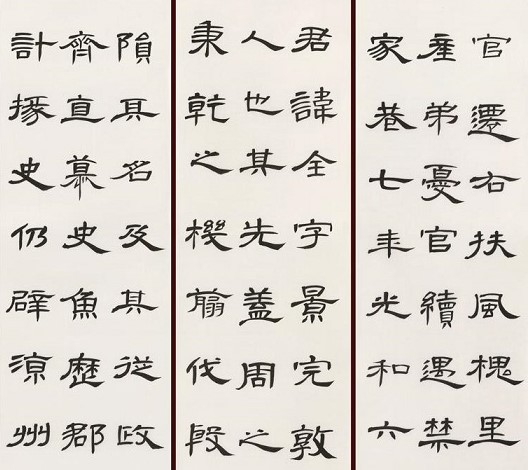 官遷右扶風槐里
産弟憂官續遇禁
家巷七年光和六
君諱全字景完敦
人也其先蓋周之
秉乾之機翦伐殷
隕其名及其從政
齊直慕史魚歷郡
計掾史仍辟涼州